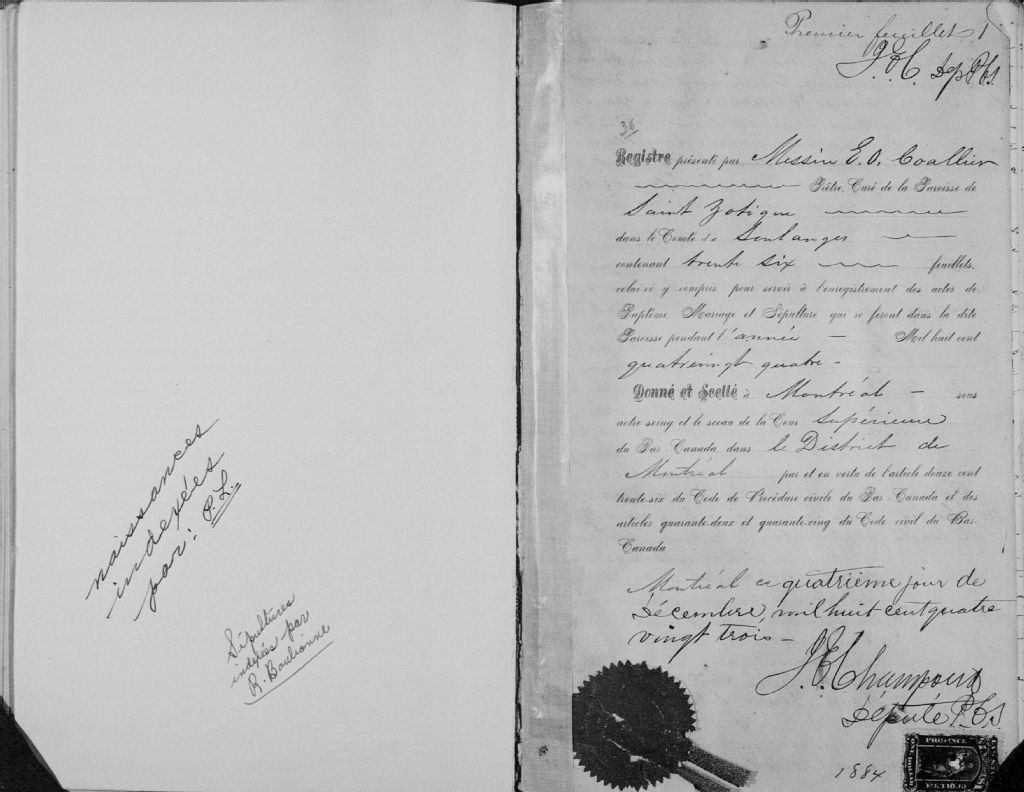 naissances
indexées
par:
P. L.
Sépultures
indexées par
R.
Premier feuillet 1
Dep P.C.S.
36
Registre présenté par Messire E. O. Coallier
Prêtre, Curé de la Paroisse de
Saint Zotique
dans le Comté de Soulanges
contenant trente six feuillets,
celui-ci y compris, pour servir à l'enregistrement des actes de
Baptême, Mariage et Sépulture qui se feront dans la dite
Paroisse pendant l'année — Mil huit cent
quatrevingt quatre —
Donné et Scellé à Montréal — sous
notre seing et le sceau de la Cour Supérieure
du Bas-Canada, dans le District de
Montréal par et en vertu de l'article douze cent
trente-six du Code de Procédure civile du Bas-Canada et des
articles quarante-deux et quarante-cinq du Code civil du Bas-
Canada
Montréal ce quatrième jour de
Décembre, mil huit cent quatre
vingt trois —
Député P.C.S.
1884
PROVINCE